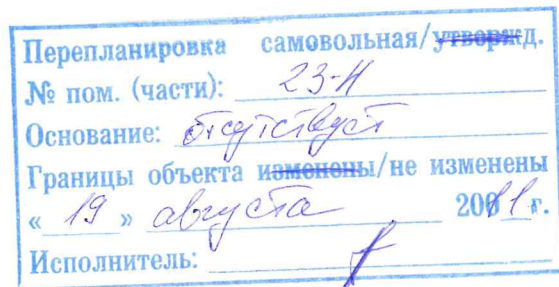 Перепланировка самовольная/утвержд.
№ пом. (части): 23-Н
Основание: отсутствует
Границы объекта изменены/не изменены
« 19 » августа 2011 г.
Исполнитель: